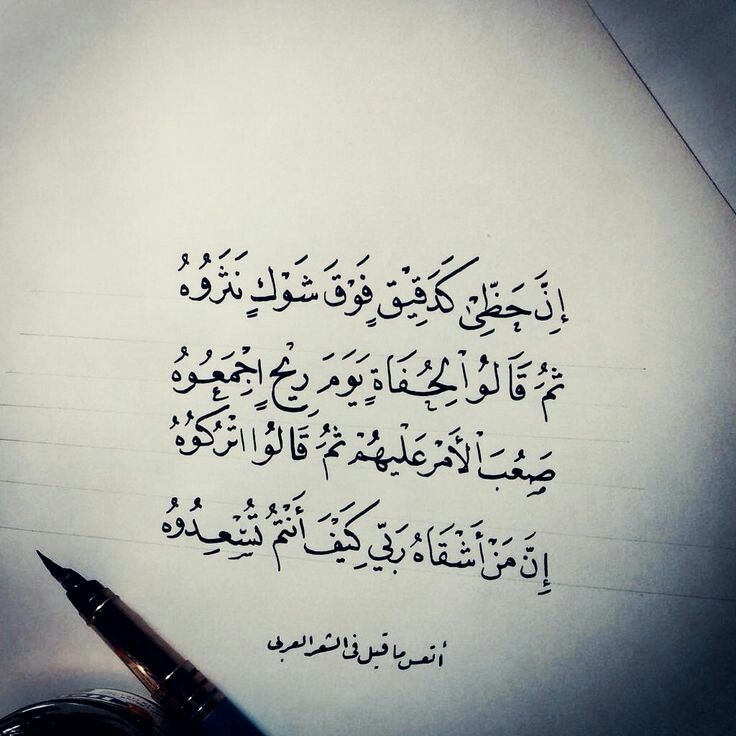 إِنَّ حَظِّيْ كَدَقِيْقٍ فَوْقَ شَوْكٍ نَثَرُوُهُ
ثُمَّ قَالُوْا لِحُفَاةٍ يَوَمَ رِيْحٍ اِجْمَعُوُهُ
صَعُبَ اْلأَمْر عَلَيْهُمْ ثُمَّ قَالُوْا اتْرُكُوُهُ
إِنَّ مَنْ أَشْقَاهُ رَبِّي كَيْفَ أَنْتُمْ تُسْعِدُوُهُ
أتعس ما قيل في الشعر العربي